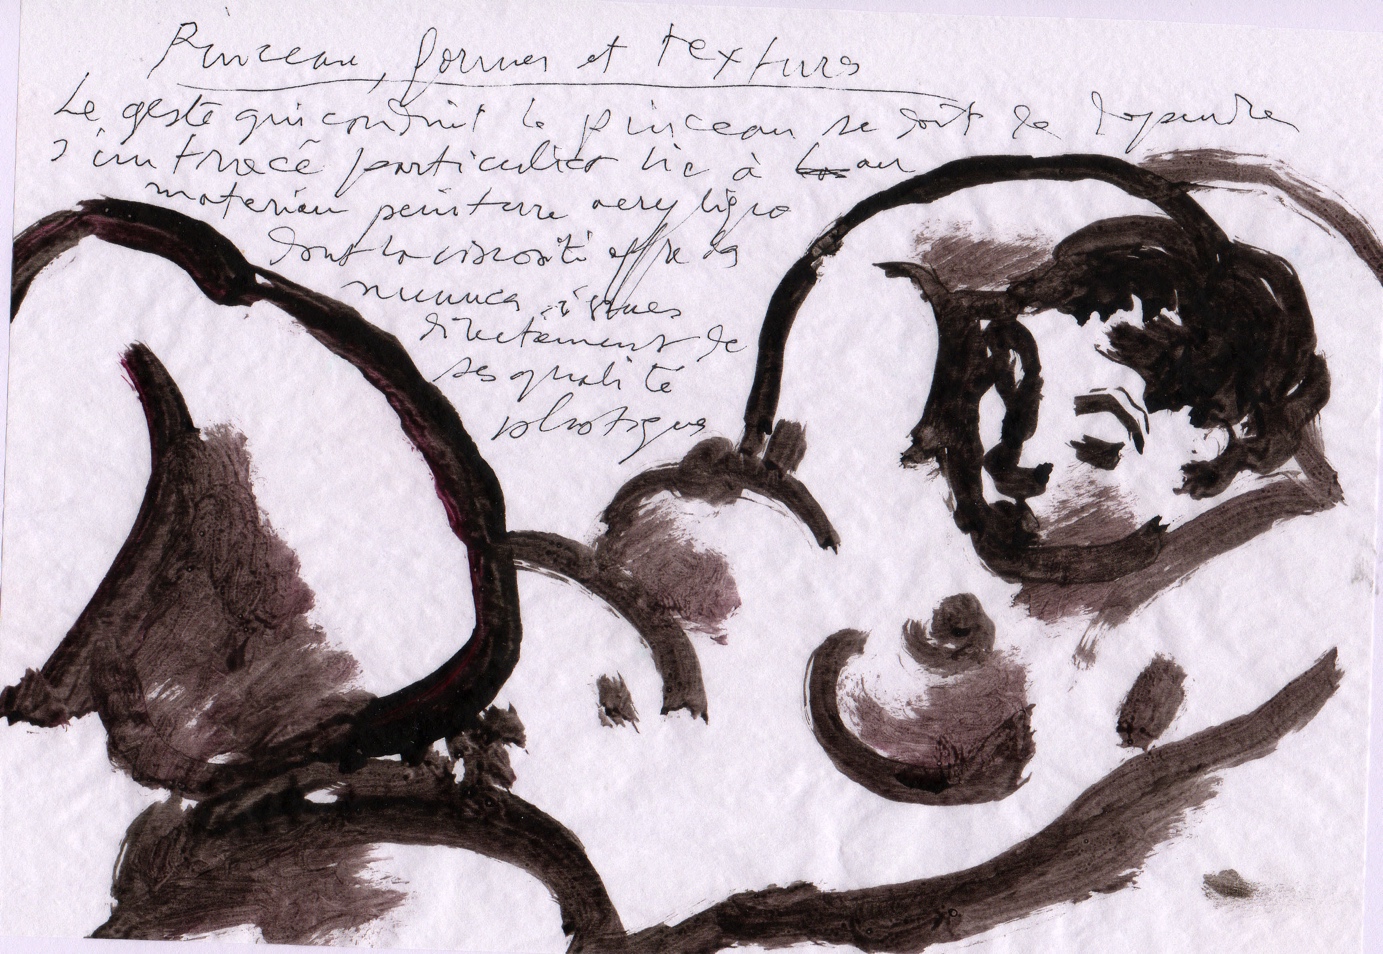 Pinceau, formes et textures
Le geste qui conduit le pinceau se doit de répondre
d'un tracé particulier lié à au
matériau peinture acrylique
dont la viscosité offre des
nuances issues
directement de
ses qualité
plastiques